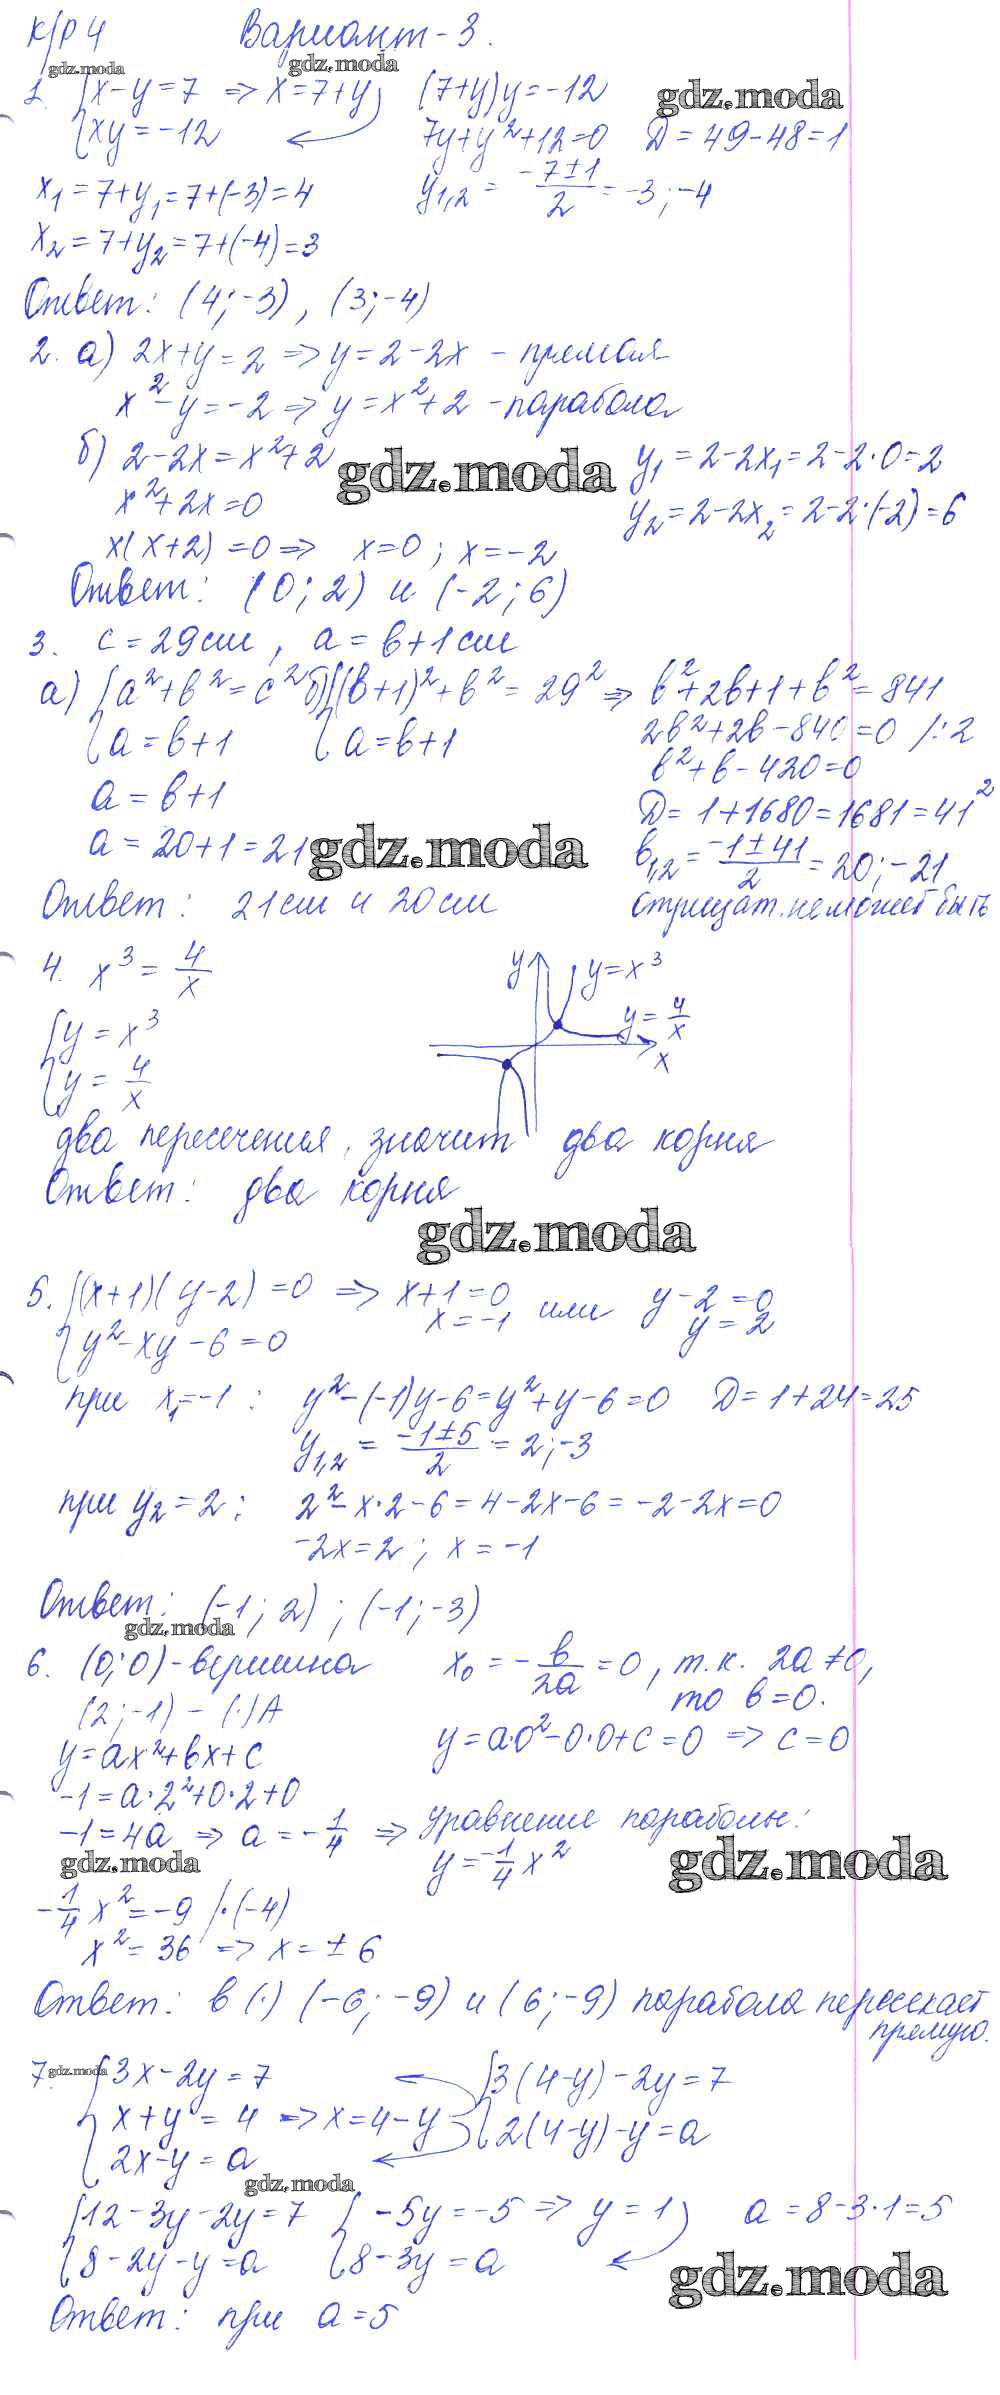 К/Р 4 Вариант-3.
gdz.moda gdz.moda
1. {x-y=7 => x=7+y (7+y)y=-12 gdz.moda
{xy=-12 7y+y²+12=0 D=49-48=1
x₁=7+y₁=7+(-3)=4 y₁,₂ = (-7±1)/2 = -3;-4
x₂=7+y₂=7+(-4)=3
Ответ: (4;-3), (3;-4)
2. а) 2x+y=2 => y=2-2x - прямая
x²-y=-2 => y=x²+2 - парабола
б) 2-2x=x²+2 gdz.moda y₁=2-2x₁=2-2·0=2
x²+2x=0 y₂=2-2x₂=2-2·(-2)=6
x(x+2)=0 => x=0; x=-2
Ответ: (0;2) и (-2;6)
3. c=29см, a=b+1см
а) {a²+b²=c² б) {(b+1)²+b²=29² => b²+2b+1+b²=841
{a=b+1 {a=b+1 2b²+2b-840=0 /:2
b²+b-420=0
a=b+1 D=1+1680=1681=41²
a=20+1=21 gdz.moda b₁,₂=(-1±41)/2=20;-21
Ответ: 21см и 20см отрицат. не может быть
4. x³=4/x y y=x³
{y=x³ y=4/x
{y=4/x x
два пересечения, значит два корня
Ответ: два корня
gdz.moda
5. {(x+1)(y-2)=0 => x+1=0 или y-2=0
{y²-xy-6=0 x=-1 y=2
при x₁=-1: y²-(-1)y-6=y²+y-6=0 D=1+24=25
y₁,₂=(-1±5)/2=2;-3
при y₂=2: 2²-x·2-6=4-2x-6=-2-2x=0
-2x=2; x=-1
Ответ: (-1;2); (-1;-3)
gdz.moda
6. (0;0)-вершина x₀=-b/2a=0, т.к. 2a≠0,
(2;-1) - (·)A то b=0.
y=ax²+bx+c y=a·0²-0·0+c=0 => c=0
-1=a·2²+0·2+0
-1=4a => a=-1/4 => Уравнение параболы:
gdz.moda y=-1/4x² gdz.moda
-1/4x²=-9 /·(-4)
x²=36 => x=±6
Ответ: в (·) (-6;-9) и (6;-9) парабола пересекает
прямую.
7. gdz.moda {3x-2y=7 {3(4-y)-2y=7
{x+y=4 => x=4-y {2(4-y)-y=a
{2x-y=a
gdz.moda
{12-3y-2y=7 {-5y=-5 => y=1 a=8-3·1=5
{8-2y-y=a {8-3y=a gdz.moda
Ответ: при a=5